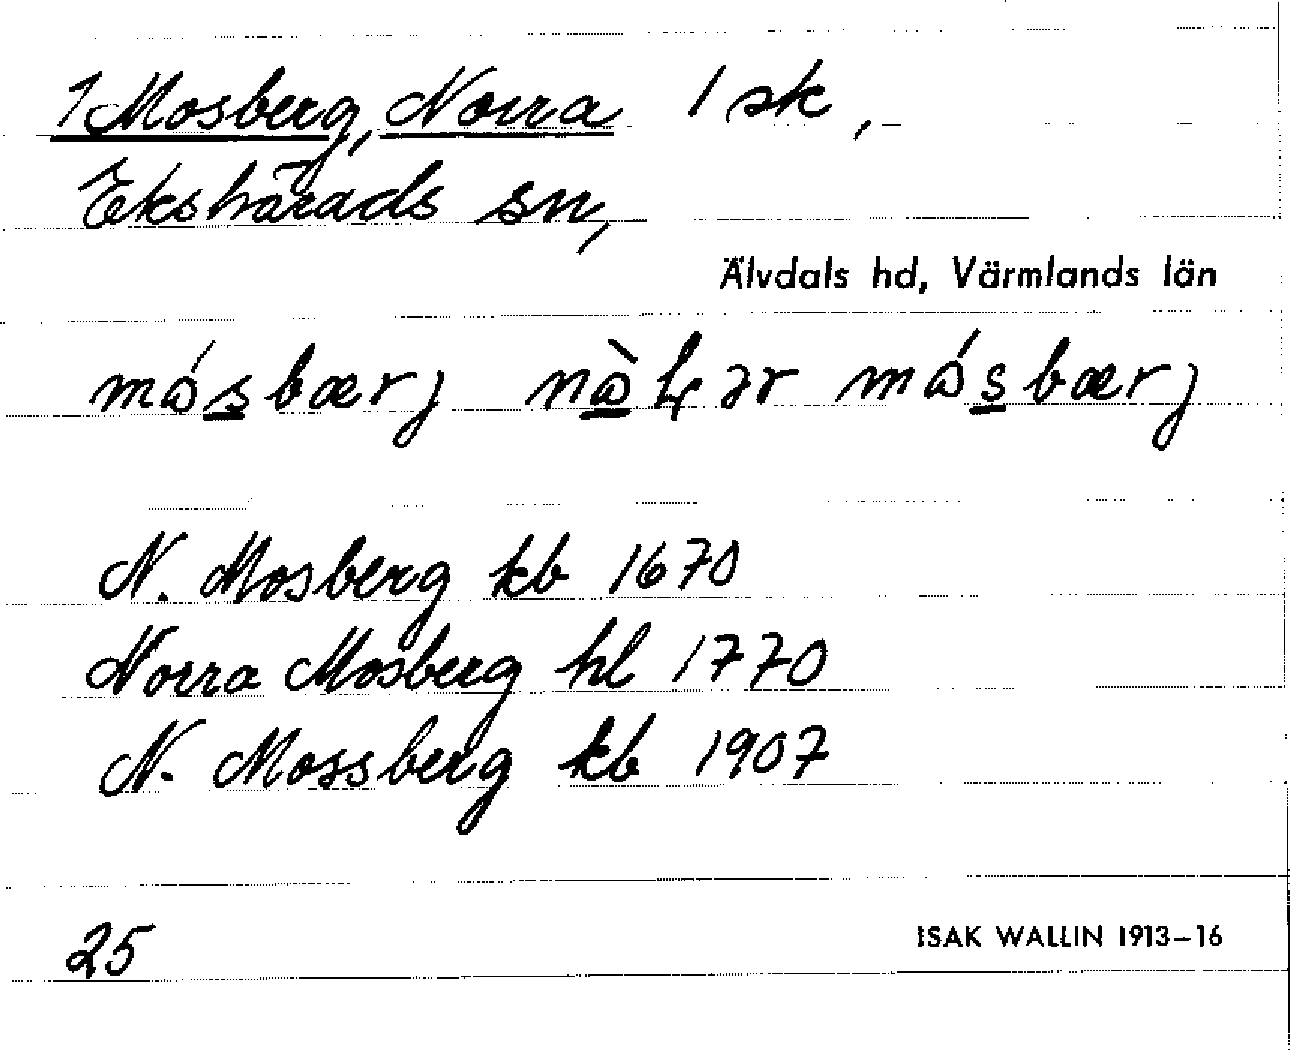 1 Mosberg, Norra 1 sk,
Ekshärads sn,
Älvdals hd, Värmlands län
N. Mosberg kb 1670
Norra Mosberg hl 1770
N. Mossberg kb 1907
25
ISAK WALLIN 1913–16